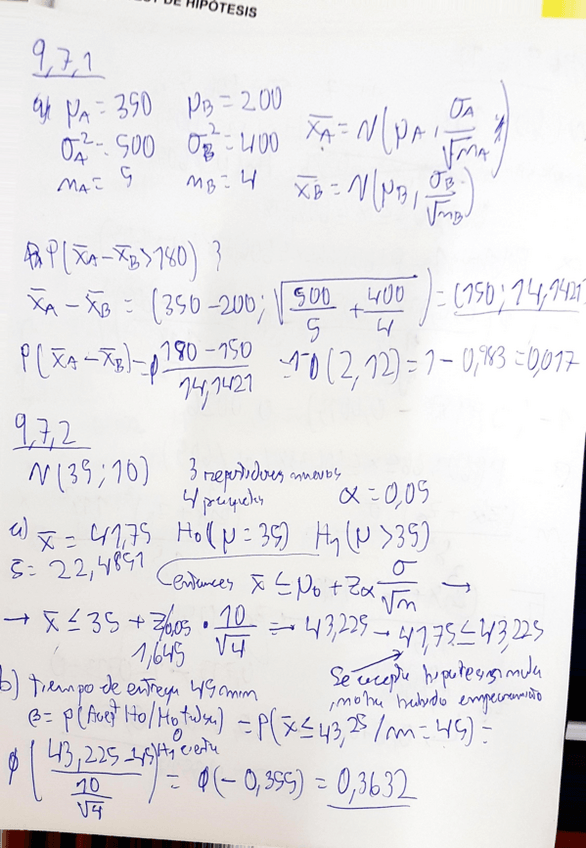 DE HIPÓTESIS
9,7,1
a) μA = 350 μB = 200
σA² = 500 σB² = 400
mA = 5 mB = 4
X̄A = N(μA, σA/√mA)
X̄B = N(μB, σB/√mB)
P(X̄A - X̄B > 180) ?
X̄A - X̄B = (350 - 200; √(500/5 + 400/4)) = (150; 14,1421
P(X̄A - X̄B) - φ (180 - 150)/14,1421 = 1 - φ(2,12) = 1 - 0,983 = 0,017
9,7,2
N(35; 10) 3 repartidores nuevos
4 paquetes α = 0,05
a) x̄ = 41,75 H0(μ = 35) H1(μ > 35)
s = 22,4851
entonces x̄ ≤ μ0 + zα σ/√m →
→ x̄ ≤ 35 + z0,05 · 10/√4 = → 43,225 → 41,75 ≤ 43,225
1,645
Se acepta hipótesis nula
, no ha habido empeoramiento
b) tiempo de entrega 45 min
β = P(Acept H0/H0 falsa) = P(x̄ ≤ 43,25 / m = 45) =
o H1 cierta
φ((43,225 - 45)/(10/√4)) = φ(-0,355) = 0,3632